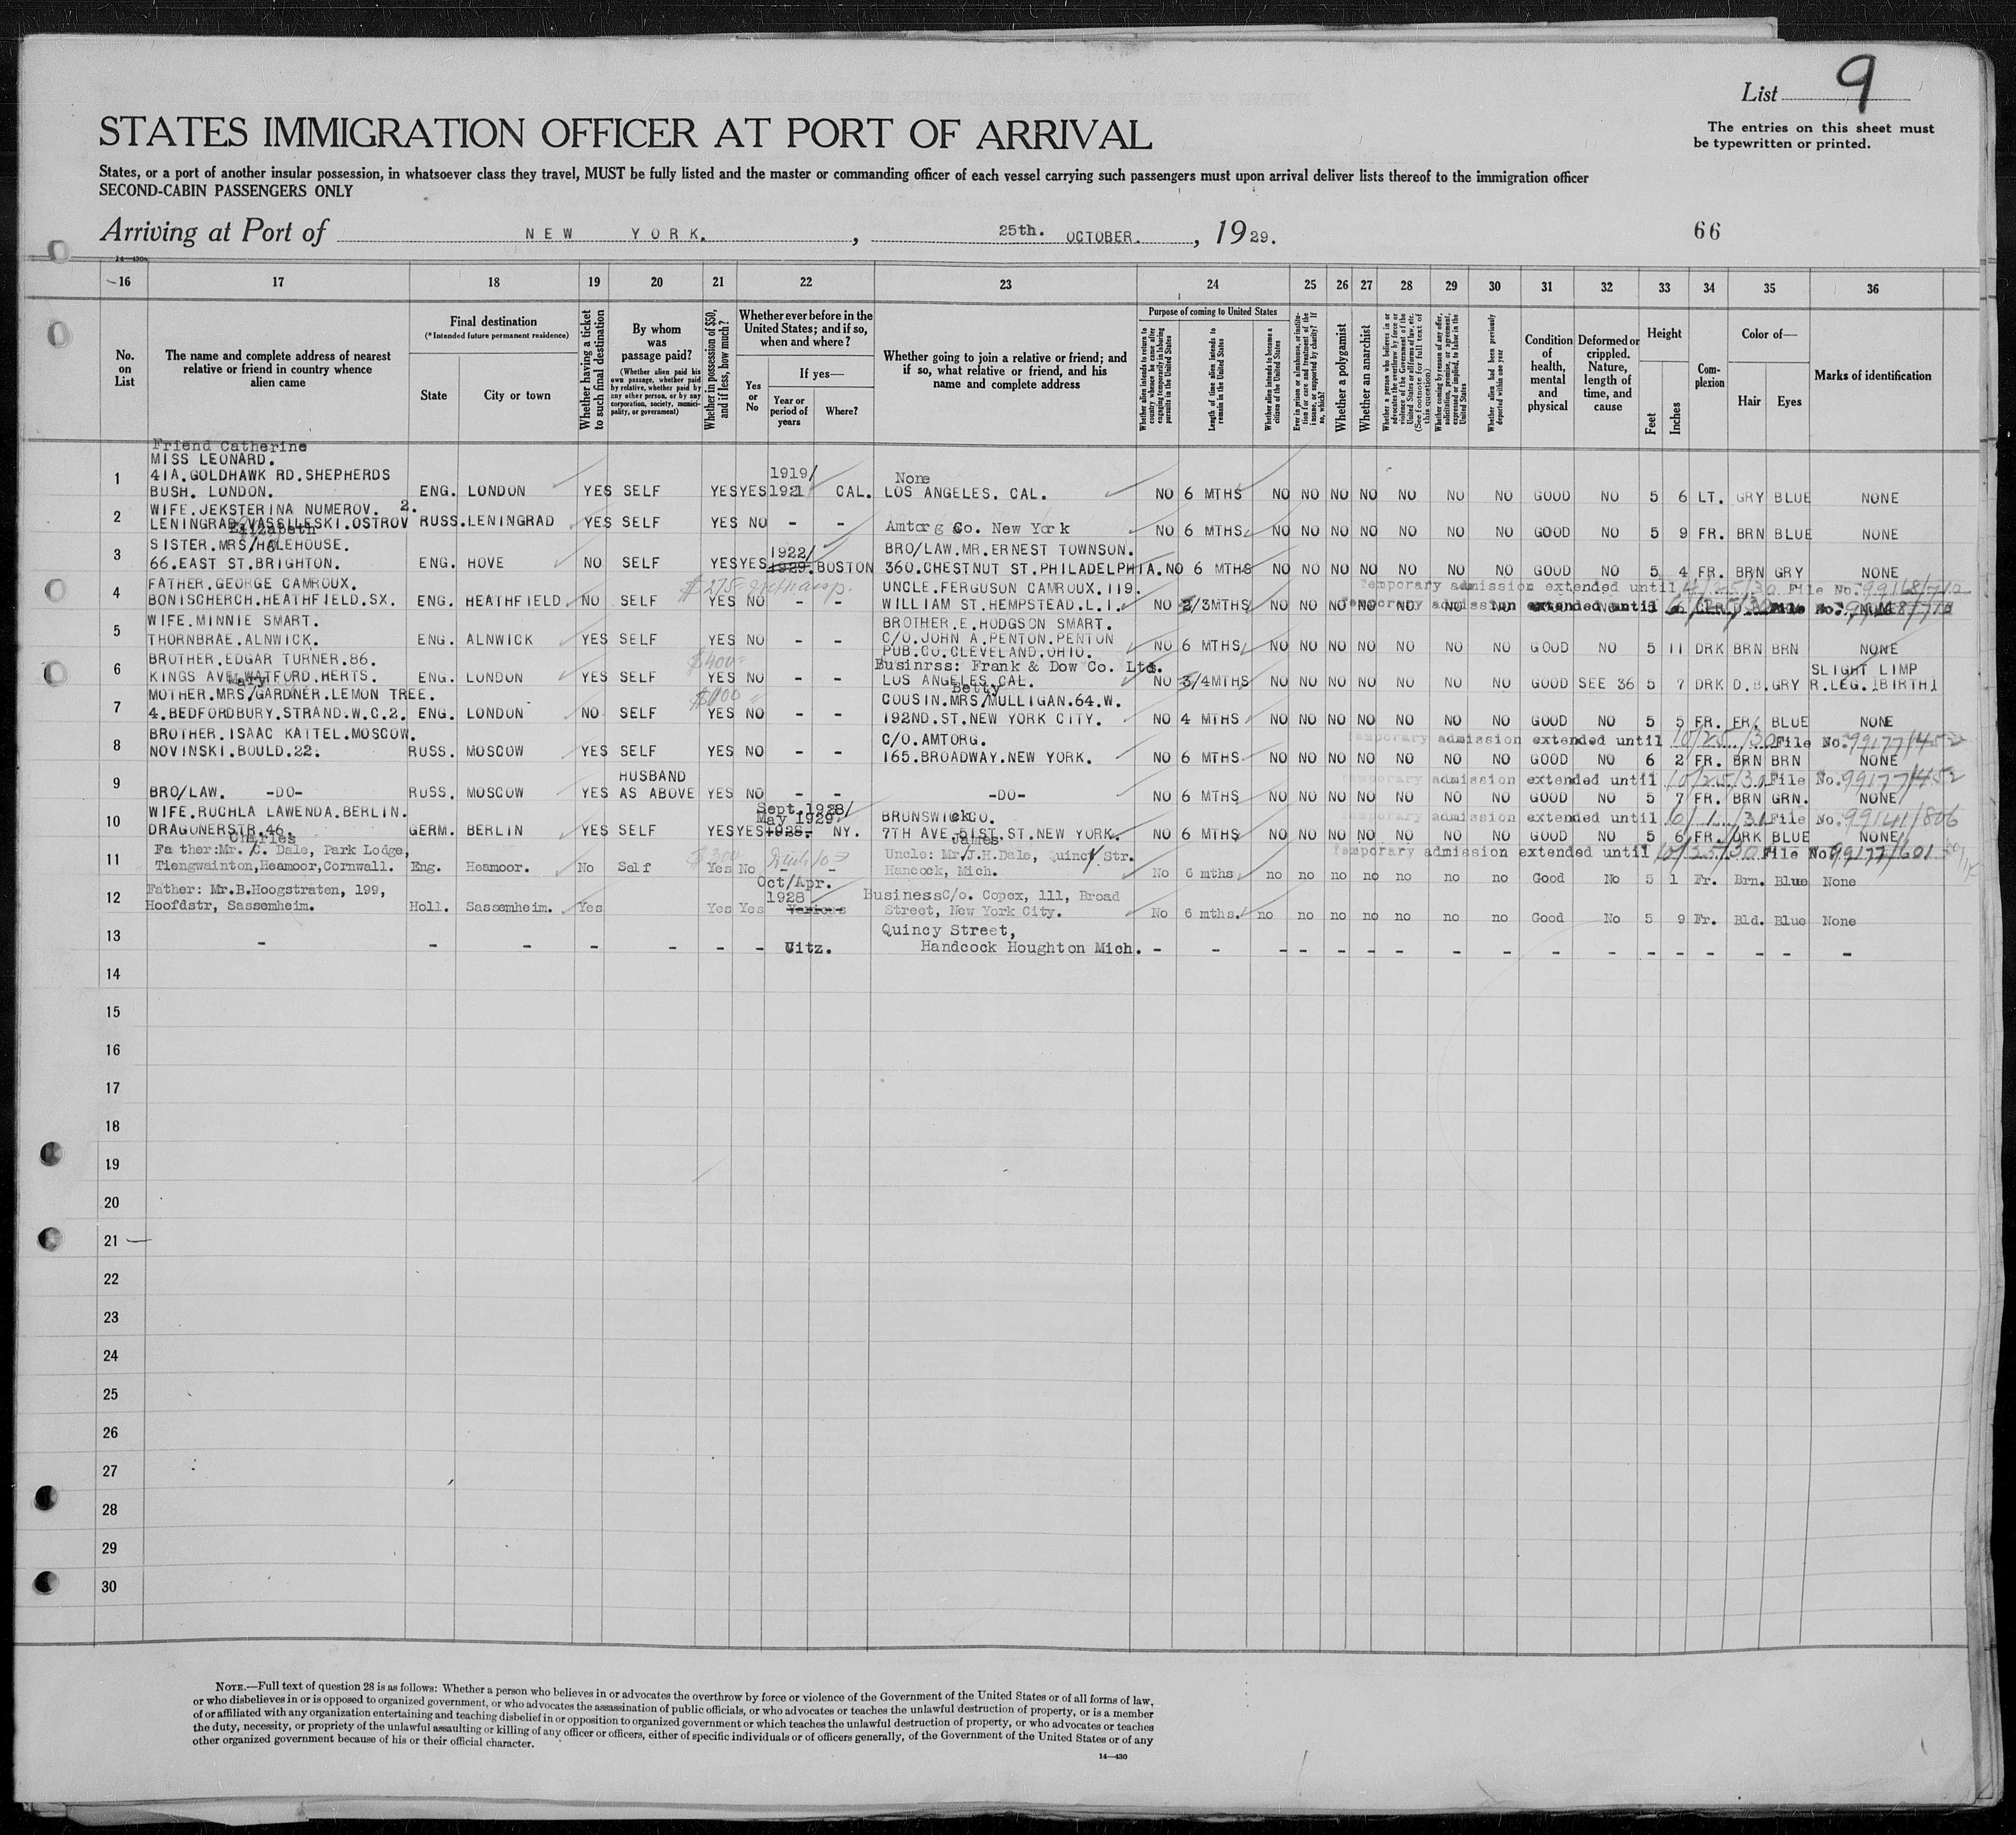 List 9
The entries on this sheet must
be typewritten or printed.
STATES IMMIGRATION OFFICER AT PORT OF ARRIVAL
States, or a port of another insular possession, in whatsoever class they travel, MUST be fully listed and the master or commanding officer of each vessel carrying such passengers must upon arrival deliver lists thereof to the immigration officer
SECOND-CABIN PASSENGERS ONLY
Arriving at Port of NEW YORK. , 25th. OCTOBER. , 1929. 66
14—430
16 17 18 19 20 21 22 23 24 25 26 27 28 29 30 31 32 33 34 35 36
No. on List
The name and complete address of nearest relative or friend in country whence alien came
Final destination
(*Intended future permanent residence)
State
City or town
Whether having a ticket to such final destination
By whom was passage paid?
(Whether alien paid his own passage, whether paid by relative, whether paid by any other person, or by any corporation, society, municipality, or government)
Whether in possession of $50, and if less, how much?
Whether ever before in the United States; and if so, when and where?
Yes or No
If yes—
Year or period of years
Where?
Whether going to join a relative or friend; and if so, what relative or friend, and his name and complete address
Purpose of coming to United States
Whether alien intends to return to country whence he came after engaging temporarily in laboring pursuits in the United States
Length of time alien intends to remain in the United States
Whether alien intends to become a citizen of the United States
Ever in prison or almshouse, or institution for care and treatment of the insane, or supported by charity? If so, which?
Whether a polygamist
Whether an anarchist
Whether a person who believes in or advocates the overthrow by force or violence of the Government of the United States or all forms of law, etc. (See footnote for full text of this question)
Whether coming by reason of any offer, solicitation, promise, or agreement, expressed or implied, to labor in the United States
Whether alien had been previously deported within one year
Condition of health, mental and physical
Deformed or crippled. Nature, length of time, and cause
Height
Feet
Inches
Complexion
Color of—
Hair
Eyes
Marks of identification
Friend Catherine
MISS LEONARD.
41A.GOLDHAWK RD.SHEPHERDS 1919/ None
1 BUSH. LONDON. ENG. LONDON YES SELF YES YES 1921 CAL. LOS ANGELES. CAL. NO 6 MTHS NO NO NO NO NO NO NO GOOD NO 5 6 LT. GRY BLUE NONE
WIFE.JEKSTERINA NUMEROV. 2.
2 LENINGRAD.VASSILESKI.OSTROV RUSS. LENINGRAD YES SELF YES NO - - Amtorg Co. New York NO 6 MTHS NO NO NO NO NO NO NO GOOD NO 5 9 FR. BRN BLUE NONE
Elizabeth
SISTER.MRS/HALEHOUSE. 1922/ BRO/LAW.MR.ERNEST TOWNSON.
3 66.EAST ST.BRIGHTON. ENG. HOVE NO SELF YES YES 1929. BOSTON 360.CHESTNUT ST.PHILADELPHIA. NO 6 MTHS NO NO NO NO NO NO NO GOOD NO 5 4 FR. BRN GRY NONE
FATHER.GEORGE CAMROUX. $275 UNCLE.FERGUSON CAMROUX.119. Temporary admission extended until 4/25/30 File No. 99168/710
4 BONISCHERCH.HEATHFIELD.SX. ENG. HEATHFIELD NO SELF YES NO - - WILLIAM ST.HEMPSTEAD.L.I. NO 2/3MTHS NO NO NO NO NO Temporary admission extended until File No. 99168/710
WIFE.MINNIE SMART. BROTHER.E.HODGSON SMART.
5 THORNBRAE.ALNWICK. ENG. ALNWICK YES SELF YES NO - - C/O.JOHN A.PENTON.PENTON
PUB.CO.CLEVELAND.OHIO. NO 6 MTHS NO NO NO NO NO NO NO GOOD NO 5 11 DRK BRN BRN NONE
BROTHER.EDGAR TURNER.86. $400 Businrss: Frank & Dow Co. Ltd. SLIGHT LIMP
6 KINGS AVE.WATFORD.HERTS. ENG. LONDON YES SELF YES NO - - LOS ANGELES CAL. NO 3/4MTHS NO NO NO NO NO NO NO GOOD SEE 36 5 7 DRK D.B. GRY R.LEG.(BIRTH)
Mary Betty
MOTHER.MRS/GARDNER.LEMON TREE. COUSIN.MRS/MULLIGAN.64.W.
7 4.BEDFORDBURY.STRAND.W.C.2. ENG. LONDON NO SELF YES NO - - 192ND.ST.NEW YORK CITY. NO 4 MTHS NO NO NO NO NO NO NO GOOD NO 5 5 FR. FR. BLUE NONE
BROTHER.ISAAC KAITEL.MOSCOW. C/O.AMTORG. Temporary admission extended until 10/25/30 File No. 99177/452
8 NOVINSKI.BOULD.22. RUSS. MOSCOW YES SELF YES NO - - 165.BROADWAY.NEW YORK. NO 6 MTHS NO NO NO NO NO NO NO GOOD NO 6 2 FR. BRN BRN NONE
HUSBAND Temporary admission extended until 10/25/30 File No. 99177/452
9 BRO/LAW. -DO- RUSS. MOSCOW YES AS ABOVE YES NO - - -DO- NO 6 MTHS NO NO NO NO NO NO NO GOOD NO 5 7 FR. BRN GRN. NONE
WIFE.RUCHLA LAWENDA.BERLIN. Sept.1928/ May 1929 BRUNSWICK CO. Temporary admission extended until 6/1/31 File No. 99141/806
10 DRAGONERSTR.46. GERM. BERLIN YES SELF YES YES 1928. NY. 7TH AVE.51ST.ST.NEW YORK. NO 6 MTHS NO NO NO NO NO NO NO GOOD NO 5 6 FR. DRK BLUE NONE
Charles James
Father:Mr./C. Dale, Park Lodge, $300 Uncle: Mr/J.H.Dale, Quincy Str. Temporary admission extended until 10/25/30 File No. 99177/601
11 Tiengwainton,Heamoor,Cornwall. Eng. Heamoor. No Self Yes No - - Hancock, Mich. No 6 mths no no no no no no no Good No 5 1 Fr. Brn. Blue None
Father: Mr.B.Hoogstraten, 199, Oct/Apr. 1928 Business C/o. Copex, 111, Broad
12 Hoofdstr, Sassemheim. Holl. Sassemheim. Yes Yes Yes Various Street, New York City. No 6 mths. no no no no no no no Good No 5 9 Fr. Bld. Blue None
Quincy Street,
13 - - - - - - - Citz. Handcock Houghton Mich. - - - - - - - - - - - - - - - - -
14
15
16
17
18
19
20
21
22
23
24
25
26
27
28
29
30
NOTE.—Full text of question 28 is as follows: Whether a person who believes in or advocates the overthrow by force or violence of the Government of the United States or of all forms of law,
or who disbelieves in or is opposed to organized government, or who advocates the assassination of public officials, or who advocates or teaches the unlawful destruction of property, or is a member
of or affiliated with any organization entertaining and teaching disbelief in or opposition to organized government or which teaches the unlawful destruction of property, or who advocates or teaches
the duty, necessity, or propriety of the unlawful assaulting or killing of any officer or officers, either of specific individuals or of officers generally, of the Government of the United States or of any
other organized government because of his or their official character.
14—430